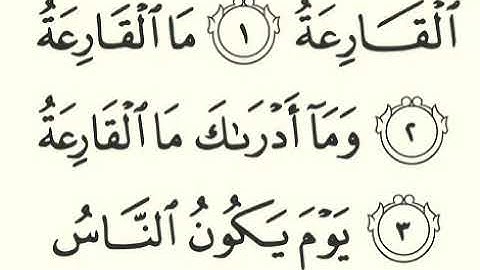 ٱلْقَارِعَةُ ١ مَا ٱلْقَارِعَةُ
٢ وَمَآ أَدْرَىٰكَ مَا ٱلْقَارِعَةُ
٣ يَوْمَ يَكُونُ ٱلنَّاسُ